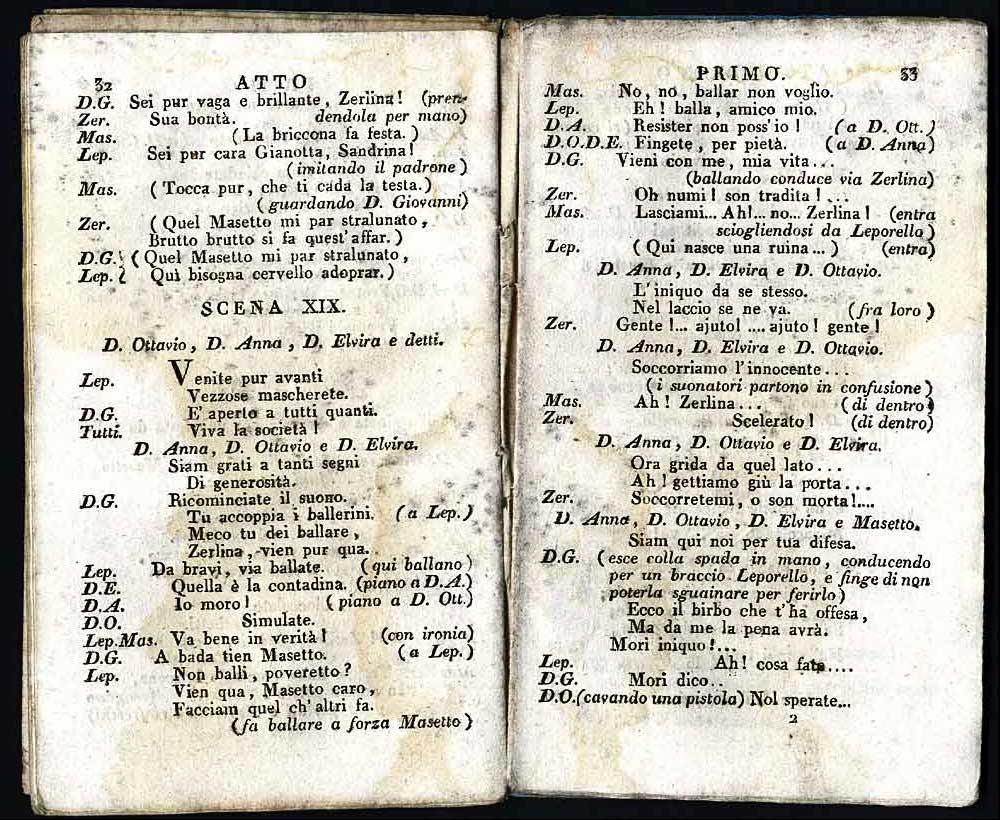 32 ATTO
D.G. Sei pur vaga e brillante, Zerlina! (pren-
Zer. Sua bontà. dendola per mano)
Mas. (La briccona fa festa.)
Lep. Sei pur cara Gianotta, Sandrina!
(imitando il padrone)
Mas. (Tocca pur, che ti cada la testa.)
(guardando D. Giovanni)
Zer. (Quel Masetto mi par stralunato,
Brutto brutto si fa quest'affar.)
D.G. (Quel Masetto mi par stralunato,
Lep. Quì bisogna cervello adoprar.)
SCENA XIX.
D. Ottavio, D. Anna, D. Elvira e detti.
Lep. Venite pur avanti
Vezzose mascherete.
D.G. E' aperto a tutti quanti.
Tutti. Viva la società!
D. Anna, D. Ottavio e D. Elvira.
Siam grati a tanti segni
Di generosità.
D.G. Ricominciate il suono.
Tu accoppia i ballerini. (a Lep.)
Meco tu dei ballare,
Zerlina, vien pur qua.
Lep. Da bravi, via ballate. (qui ballano)
D.E. Quella è la contadina. (piano a D.A.)
D.A. Io moro! (piano a D. Ott.)
D.O. Simulate.
Lep.Mas. Va bene in verità! (con ironia)
D.G. A bada tien Masetto. (a Lep.)
Lep. Non balli, poveretto?
Vien qua, Masetto caro,
Facciam quel ch'altri fa.
(fa ballare a forza Masetto)
PRIMO. 33
Mas. No, nò, ballar non voglio.
Lep. Eh! balla, amico mio.
D.A. Resister non poss'io! (a D. Ott.)
D.O.D.E. Fingete, per pietà. (a D. Anna)
D.G. Vieni con me, mia vita...
(ballando conduce via Zerlina)
Zer. Oh numi! son tradita!...
Mas. Lasciami... Ah!... no... Zerlina! (entra
sciogliendosi da Leporello)
Lep. (Qui nasce una ruina...) (entra)
D. Anna, D. Elvira e D. Ottavio.
L'iniquo da se stesso.
Nel laccio se ne va. (fra loro)
Zer. Gente!... ajuto! .... ajuto! gente!
D. Anna, D. Elvira e D. Ottavio.
Soccorriamo l'innocente...
(i suonatori partono in confusione)
Mas. Ah! Zerlina... (di dentro)
Zer. Scelerato! (di dentro)
D. Anna, D. Ottavio e D. Elvira.
Ora grida da quel lato...
Ah! gettiamo giù la porta...
Zer. Soccorretemi, o son morta!....
D. Anna, D. Ottavio, D. Elvira e Masetto.
Siam qui noi per tua difesa.
D.G. (esce colla spada in mano, conducendo
per un braccio Leporello, e finge di non
poterla sguainare per ferirlo)
Ecco il birbo che t'ha offesa,
Ma da me la pena avrà.
Mori iniquo!...
Lep. Ah! cosa fate....
D.G. Mori dico..
D.O.(cavando una pistola) Nol sperate...
2